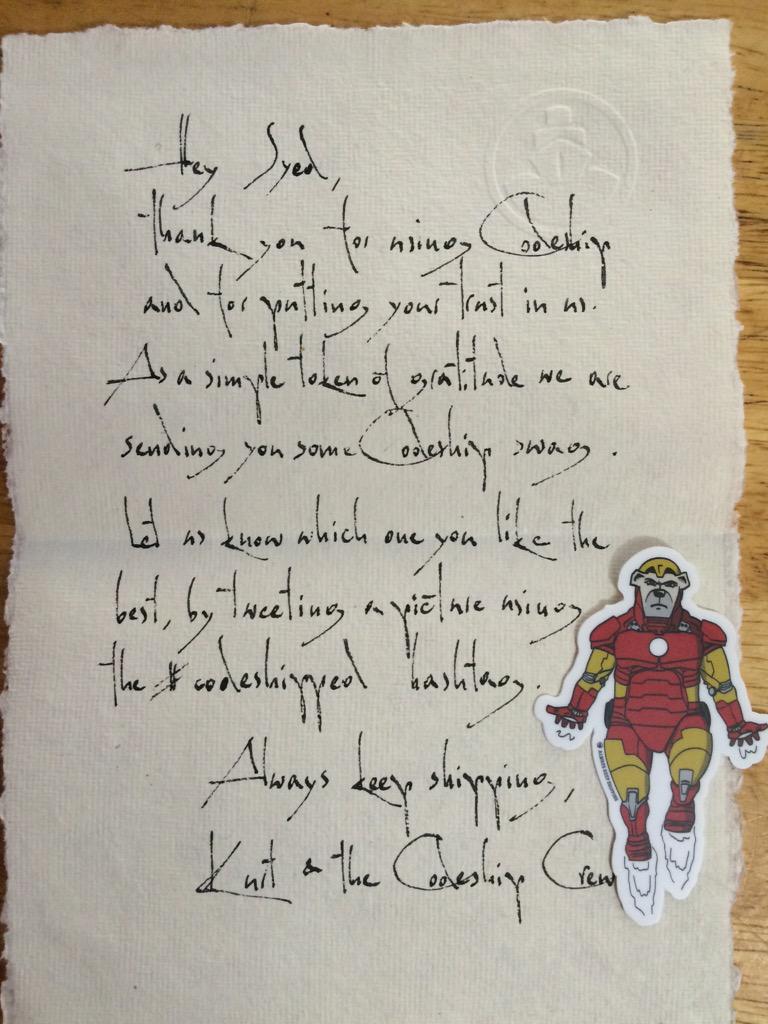 Hey Syed,
Thank you for using Codeship
and for putting your trust in us.
As a simple token of gratitude we are
sending you some Codeship swag.
Let us know which one you like the
best, by tweeting a picture using
the #codeshipped hashtag.
Always keep shipping,
& the Codeship Crew